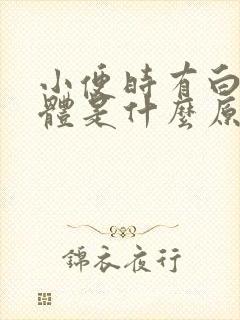 小便時有白
體是什麼原
錦衣夜行